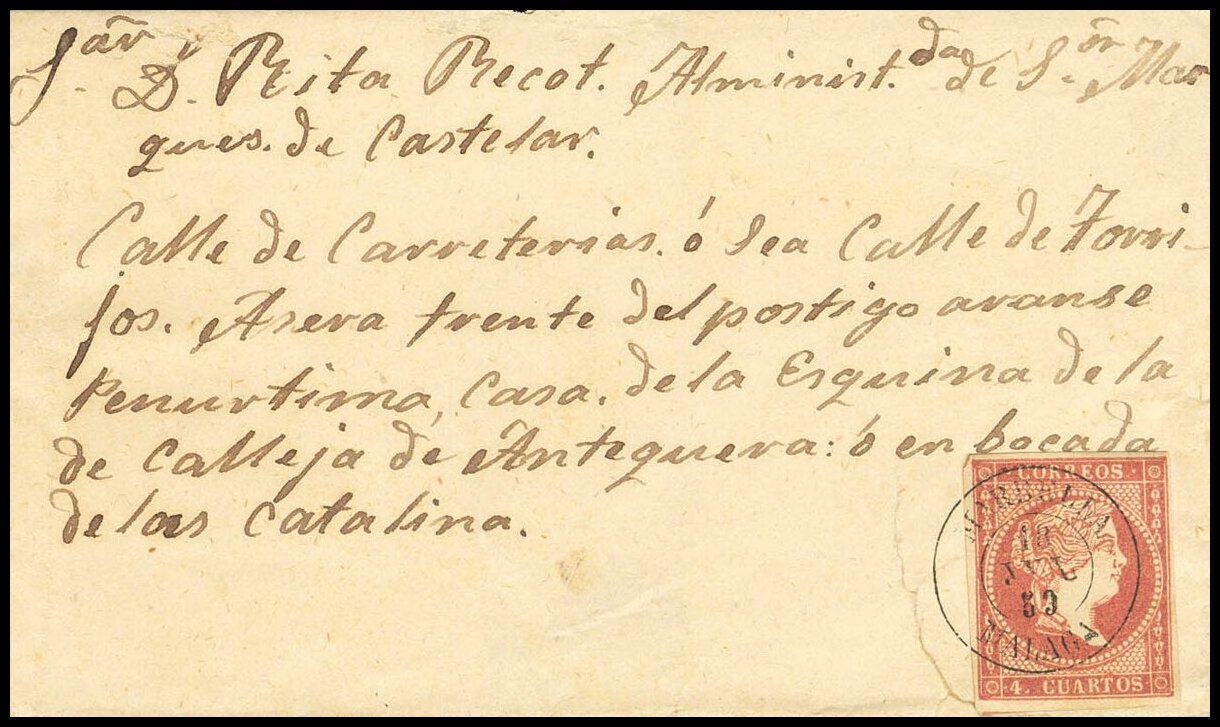 Sar. Da. Rita Recot. Alminist.da de Sor. Mar
ques. de Castelar.
Calle de Carreterias. ó sea Calle de Torri-
jos. Asera frente del postigo aranse
Penurtima, Casa. de la Esquina de la
de Calleja de Antequera: ó en bocada
de las Catalina.
CORREOS
MARBELLA
18
JUL
59
MALAGA
4. CUARTOS